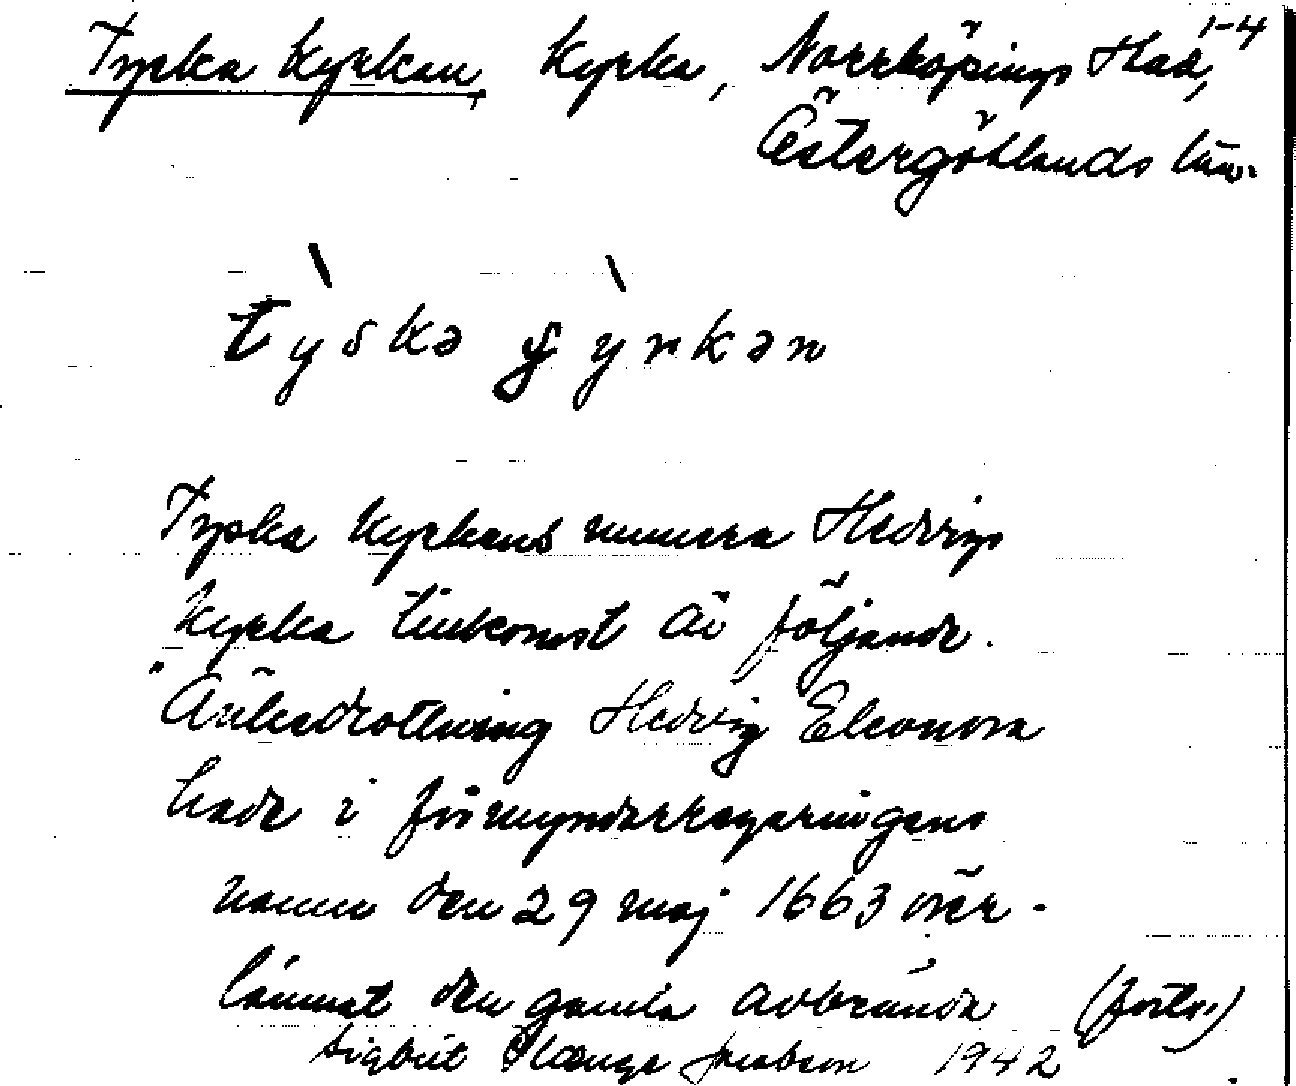 1-4
Tyska kyrkan, kyrka, Norrköpings stad,
Östergötlands län.
tỳskə ʃỳrkən
Tyska kyrkans numera Hedvigs
kyrka tillkomst är följande.
"Änkedrottning Hedvig Eleonora
hade i förmyndarregeringens
namn den 29 maj 1663 över-
lämnat den gamla avbrända (forts.)
Sigbrit Jacobson 1942